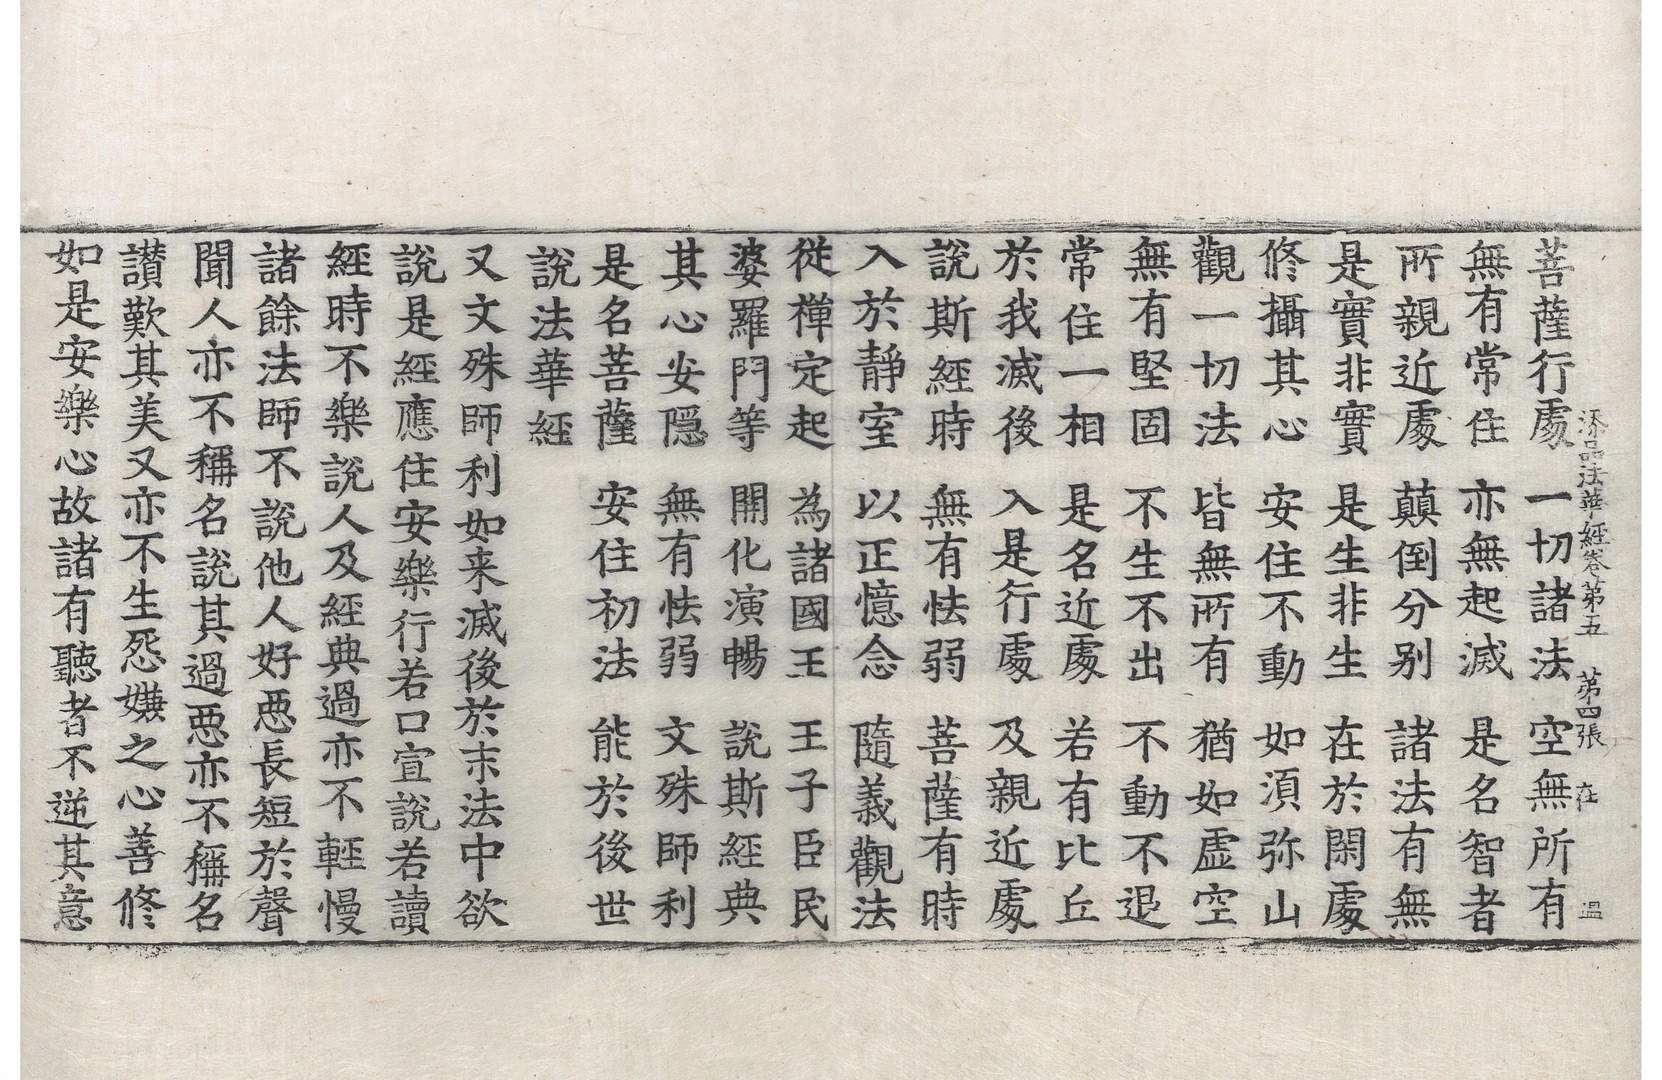 添品法華經卷第五　第四張　在　溫
菩薩行處　一切諸法　空無所有
無有常住　亦無起滅　是名智者
所親近處　顛倒分別　諸法有無
是實非實　是生非生　在於閑處
修攝其心　安住不動　如須弥山
觀一切法　皆無所有　猶如虛空
無有堅固　不生不出　不動不退
常住一相　是名近處　若有比丘
於我滅後　入是行處　及親近處
說斯經時　無有怯弱　菩薩有時
入於靜室　以正憶念　隨義觀法
從禪定起　為諸國王　王子臣民
婆羅門等　開化演暢　說斯經典
其心安隱　無有怯弱　文殊師利
是名菩薩　安住初法　能於後世
說法華經
又文殊師利如来滅後於末法中欲
說是經應住安樂行若口宣說若讀
經時不樂說人及經典過亦不輕慢
諸餘法師不說他人好惡長短於聲
聞人亦不稱名說其過惡亦不稱名
讃歎其美又亦不生怨嫌之心善修
如是安樂心故諸有聽者不逆其意